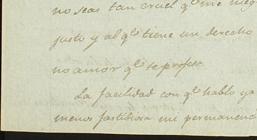 no seas tan cruel qe me nieg
justo y al qe tiene un derecho
no amor qe te profeso
La facilidad con qe hablo ya
menos justifica mi permanenci